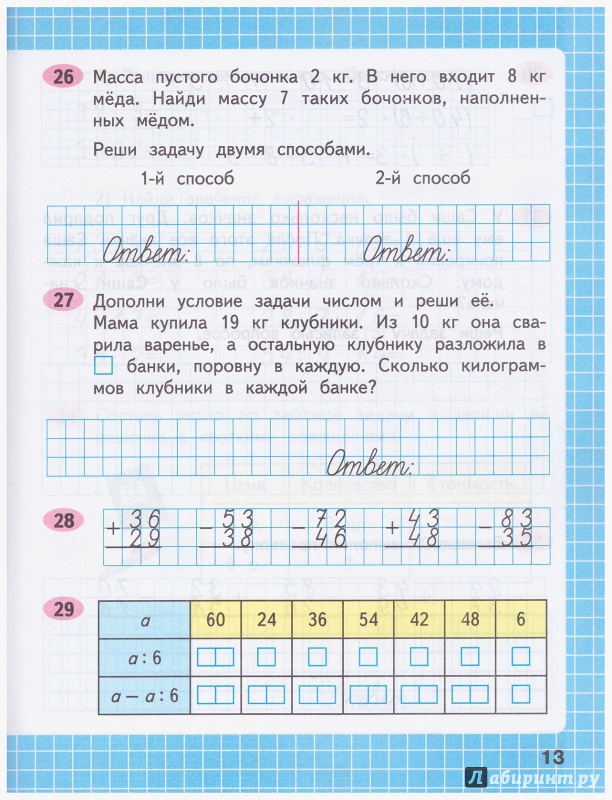 26 Масса пустого бочонка 2 кг. В него входит 8 кг
мёда. Найди массу 7 таких бочонков, наполнен-
ных мёдом.
Реши задачу двумя способами.
1-й способ 2-й способ
Ответ: Ответ:
27 Дополни условие задачи числом и реши её.
Мама купила 19 кг клубники. Из 10 кг она сва-
рила варенье, а остальную клубнику разложила в
банки, поровну в каждую. Сколько килограм-
мов клубники в каждой банке?
Ответ:
28 + 36 − 53 − 72 + 43 − 83
29 38 46 48 35
29 a 60 24 36 54 42 48 6
a : 6
a − a : 6
13
Лабиринт.ру